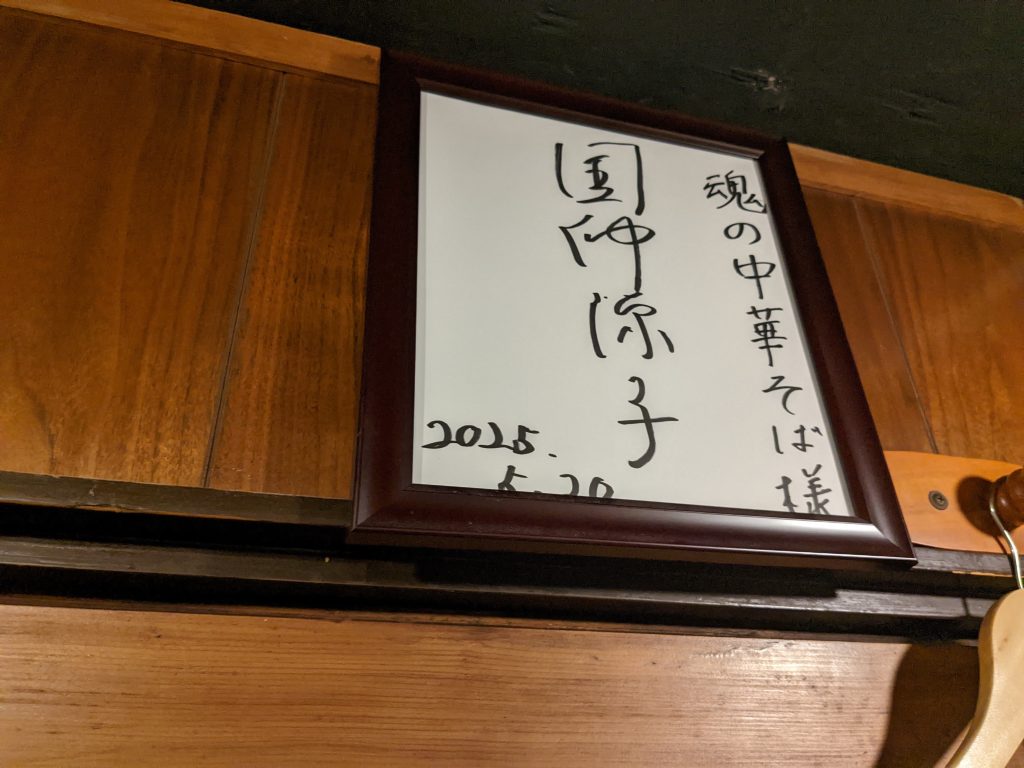 魂の中華そば様
国仲涼子
2025.
5.20